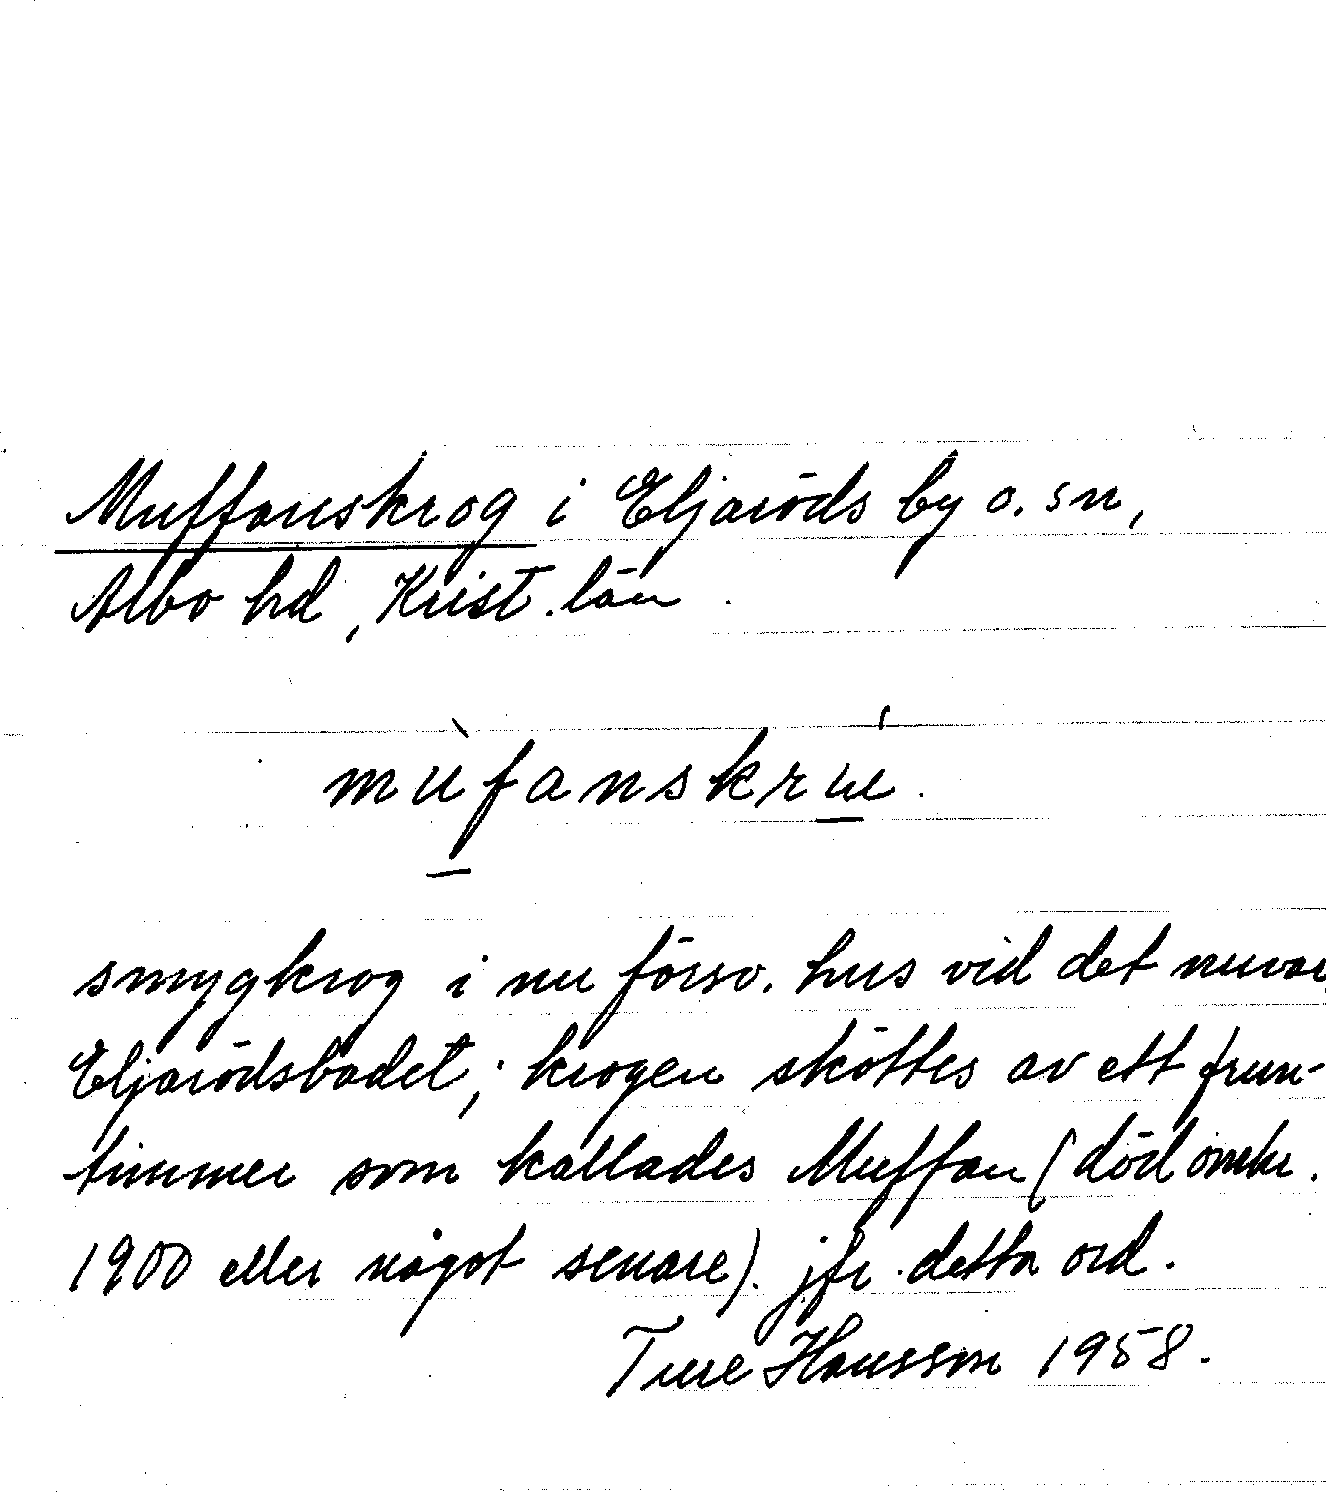 Muffanskrog i Eljaröds by o. sn,
Albo hd, Krist. län.
mùfanskrúé.
smygkrog i nu försv. hus vid det nuvar
Eljarödsbadet; krogen sköttes av ett frun-
timmer som kallades Muffan (död omkr.
1900 eller något senare). jfr. detta ord.
Ture Hansson 1958.